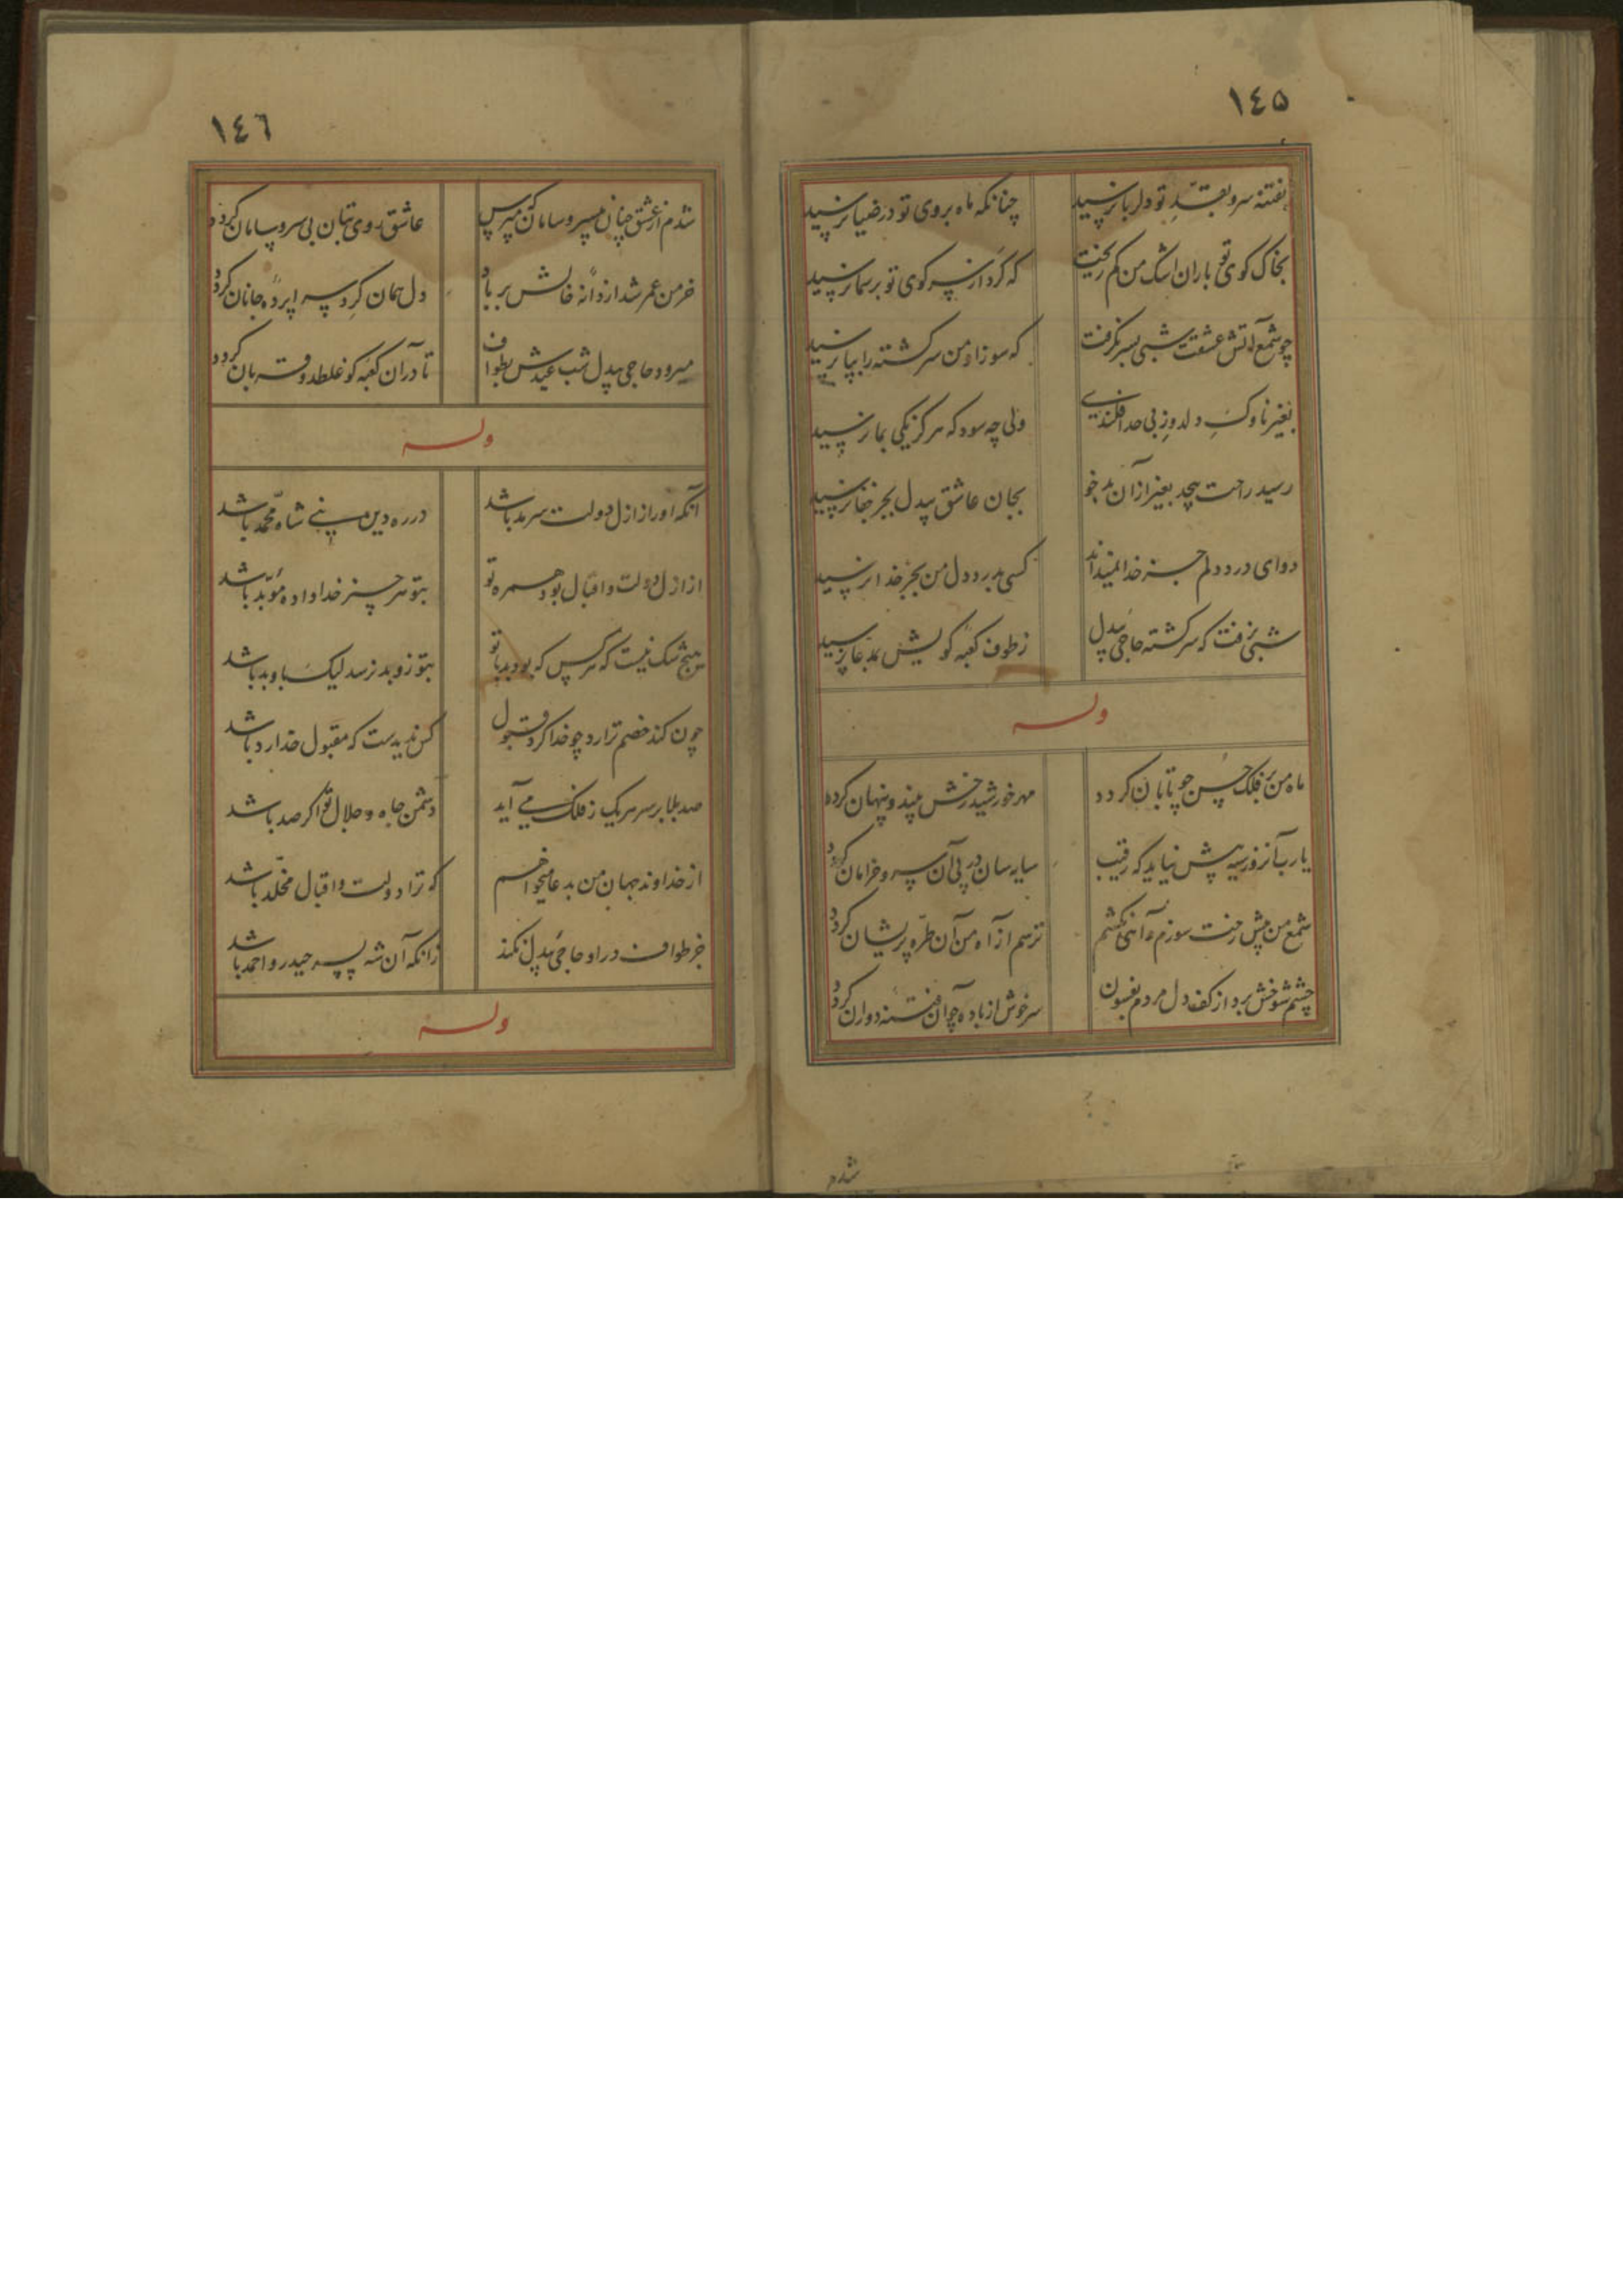 ١٤٥
بفتنه سرو بقد تو دلربا نرسید چنانکه ماه بروی تو در ضیا نرسید
بخاک کوی تو باران اشک من کم ریخت که گرد از سر کوی تو بر سما نرسید
چو شمع آتش عشقت شبی بسر نگرفت که سوز او من سرگشته را بپا نرسید
بغیر ناوک دلدوز بی حد افکندی ولی چه سود که هرگز یکی بما نرسید
رسید راحت بیحد بغیر از آن بدخو بجان عاشق بیدل بجز جفا نرسید
دوای درد دلم جز خدا نمیداند کسی بدرد دل من بجز خدا نرسید
شبی نرفت که سرگشته حاجی بیدل ز طوف کعبه کویش بمدعا نرسید
وله
ماه من بر فلک حسن چو تابان گردد مهر خورشید رخش بیند و پنهان گردد
یارب آنروز سیه پیش نیاید که رقیب سایه سان در پی آن سرو خرامان گردد
شمع من پیش رخت سوزم و آهی نکشم ترسم از آه من آن طره پریشان گردد
چشم شوخش برد از کف دل مردم بفسون سرخوش از باده چو آن فتنه دوران گردد
شدم
١٤٦
شدم از عشق چنان بیسر و سامان که مپرس عاشق روی بتان بی سر و سامان گردد
خرمن عمر شد از دانه خالش بر باد دل همان گرد سراپرده جانان گردد
میرود حاجی بیدل شب عیدش بطواف تا در آن کعبه کو غلطد و قربان گردد
وله
آنکه او را ز ازل دولت سرمد باشد در ره دین نبی شاه محمد باشد
از ازل دولت و اقبال بود همره تو بتو هر چیز خدا داده مؤبد باشد
هیچ شک نیست که هر کس که بود بد با تو بتو زو بد نرسد لیک باو بد باشد
چون کند خصم ترا رد چو خدا کرد قبول کس ندیدست که مقبول خدا رد باشد
صد بلا بر سر هر یک ز فلک می آید دشمن جاه و جلال تو اگر صد باشد
از خداوند جهان من بدعا میخواهم که ترا دولت و اقبال مخلد باشد
جز طواف در او حاجی بیدل نکند زانکه آن شه پسر حیدر و احمد باشد
وله